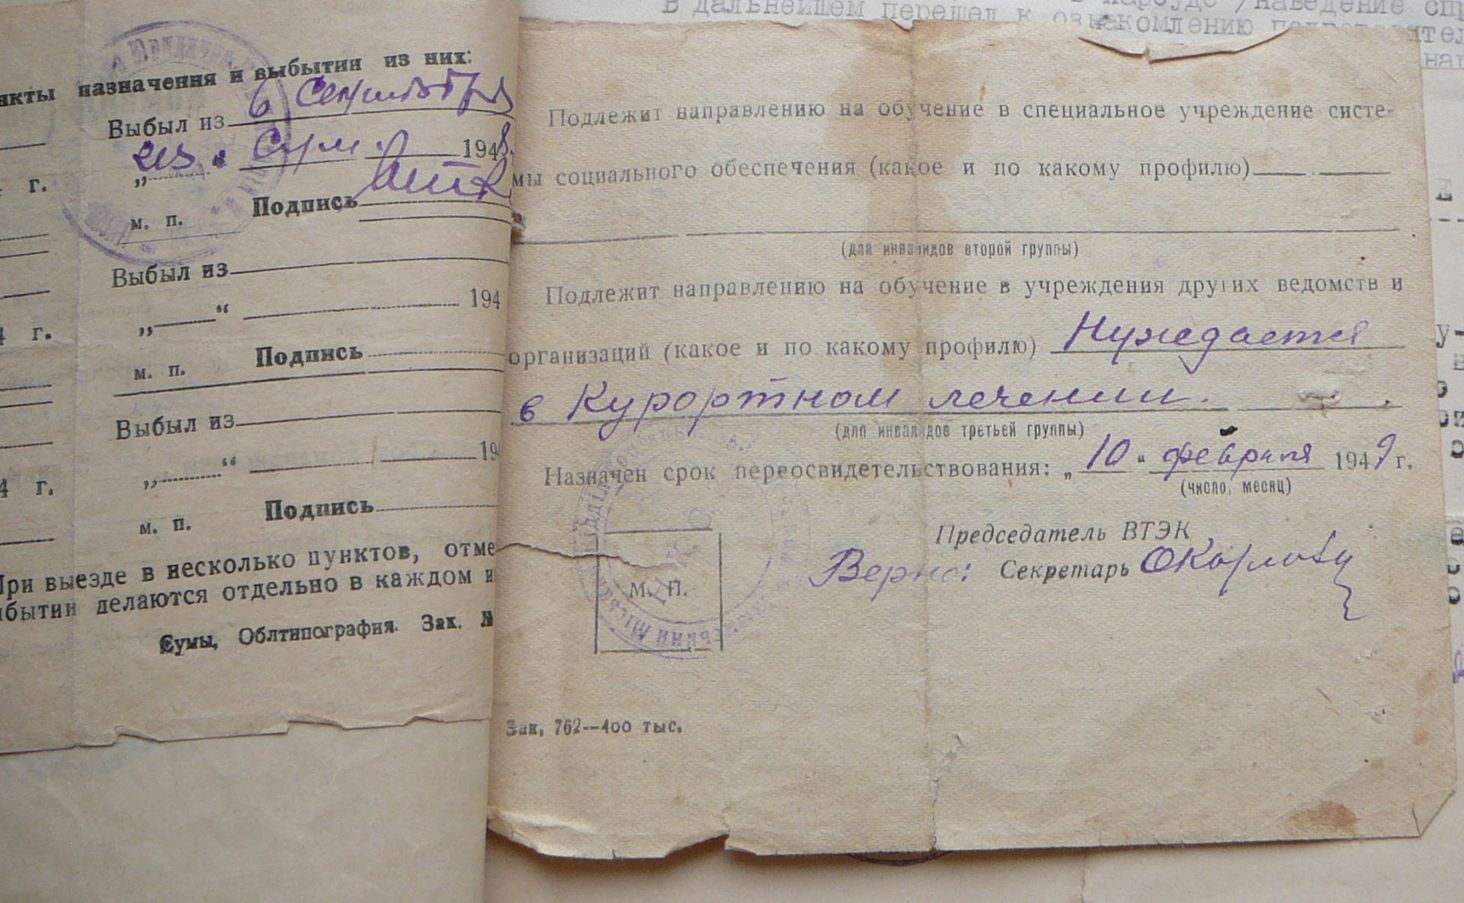 В дальнейшем перешел к ознакомлению
нкты назначения и выбытии из них:
Выбыл из 6 Сентября
из г. Сум. 1948
г.
м. п. Подпись
Выбыл из
„ “ 194
г.
м. п. Подпись
Выбыл из
„ “ 194
4 г.
м. п. Подпись
При выезде в несколько пунктов, отме
бытии делаются отдельно в каждом
Сумы, Облтипография. Зак. №
Подлежит направлению на обучение в специальное учреждение систе-
мы социального обеспечения (какое и по какому профилю)
(для инвалидов второй группы)
Подлежит направлению на обучение в учреждения других ведомств и
организаций (какое и по какому профилю) Нуждается
в Курортном лечении.
(для инвалидов третьей группы)
Назначен срок переосвидетельствования: „10“ февраля 1949 г.
(число, месяц)
Председатель ВТЭК
Верно: Секретарь
М. П.
Зак. 762--400 тыс.